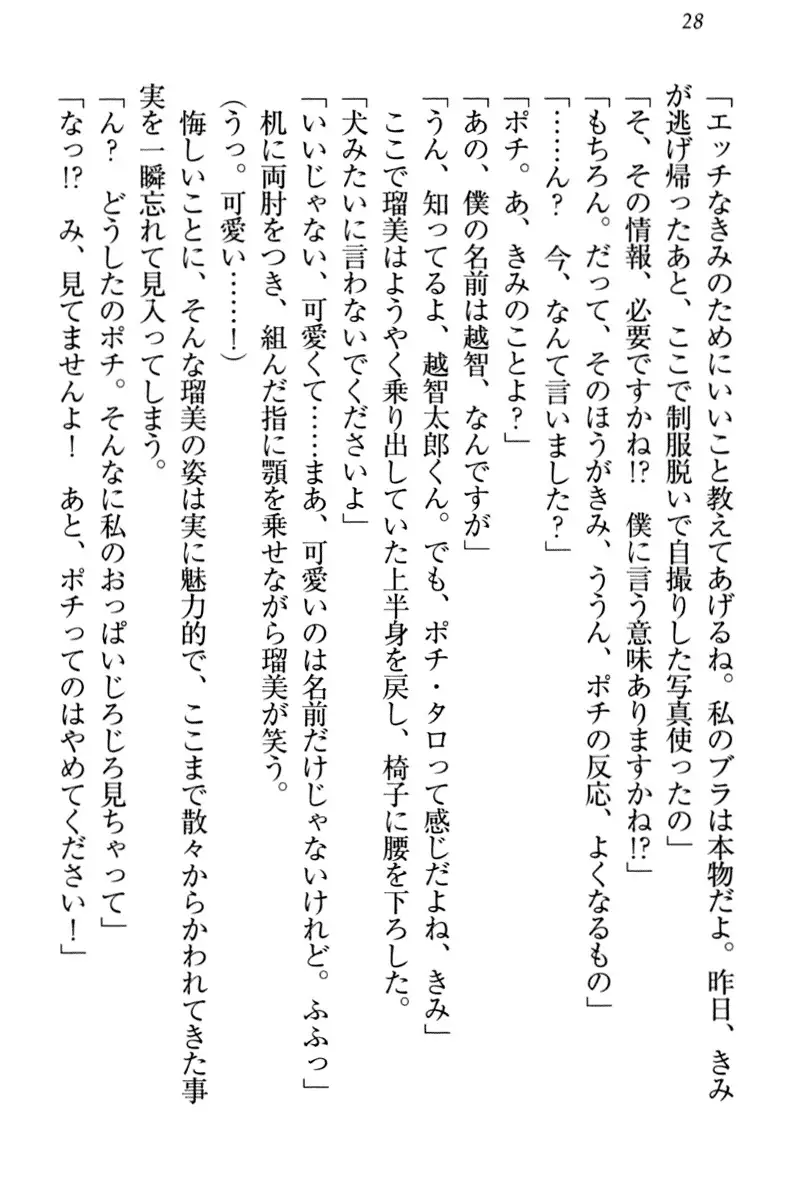 28
「エッチなきみのためにいいこと教えてあげるね。私のブラは本物だよ。昨日、きみ
が逃げ帰ったあと、ここで制服脱いで自撮りした写真使ったの」
「そ、その情報、必要ですかね!?　僕に言う意味ありますかね!?」
「もちろん。だって、そのほうがきみ、ううん、ポチの反応、よくなるもの」
「……ん?　今、なんて言いました?」
「ポチ。あ、きみのことよ?」
「あの、僕の名前は越智、なんですが」
「うん、知ってるよ、越智太郎くん。でも、ポチ・タロって感じだよね、きみ」
ここで瑠美はようやく乗り出していた上半身を戻し、椅子に腰を下ろした。
「犬みたいに言わないでくださいよ」
「いいじゃない、可愛くて……まあ、可愛いのは名前だけじゃないけれど。ふふっ」
机に両肘をつき、組んだ指に顎を乗せながら瑠美が笑う。
(うっ。可愛い……!)
悔しいことに、そんな瑠美の姿は実に魅力的で、ここまで散々からかわれてきた事
実を一瞬忘れて見入ってしまう。
「ん?　どうしたのポチ。そんなに私のおっぱいじろじろ見ちゃって」
「なっ!?　み、見てませんよ!　あと、ポチってのはやめてください!」